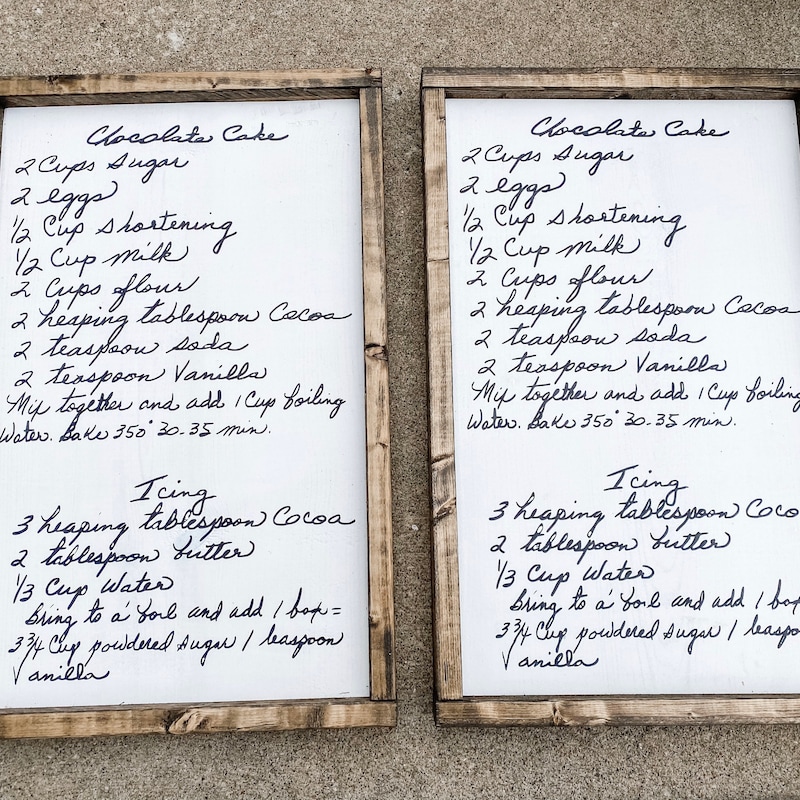 Chocolate Cake
2 Cups Sugar
2 eggs
1/2 Cup shortening
1/2 Cup Milk
2 Cups flour
2 heaping tablespoon Cocoa
2 teaspoon soda
2 teaspoon Vanilla
Mix together and add 1 Cup boiling
Water. Bake 350° 30-35 min.
Icing
3 heaping tablespoon Cocoa
2 tablespoon butter
1/3 Cup Water
Bring to a boil and add 1 box =
3 3/4 Cup powdered sugar 1 teaspoon
Vanilla
Chocolate Cake
2 Cups Sugar
2 eggs
1/2 Cup shortening
1/2 Cup Milk
2 Cups flour
2 heaping tablespoon Cocoa
2 teaspoon soda
2 teaspoon Vanilla
Mix together and add 1 Cup boiling
Water. Bake 350° 30-35 min.
Icing
3 heaping tablespoon Coco
2 tablespoon butter
1/3 Cup Water
Bring to a boil and add 1 box
3 3/4 Cup powdered sugar 1 teaspo
Vanilla